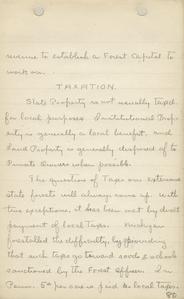 revenue to establish a Forest Capital to
work on.
TAXATION.
State Property is not usually taxed
for local purposes. Institutional Prop-
erty is generally a local benefit, and
Land Property is generally disposed of to
Private Owners when possible.
The question of Taxes on extensive
state forests will always come up. With
two exceptions, it has been met by direct
payment of local Taxes. Michigan
forestalled the difficulty, by providing
that such taxes go toward roads & schools
sanctioned by the Forest officers. In
Penna. 5¢ per acre is paid to local taxes.